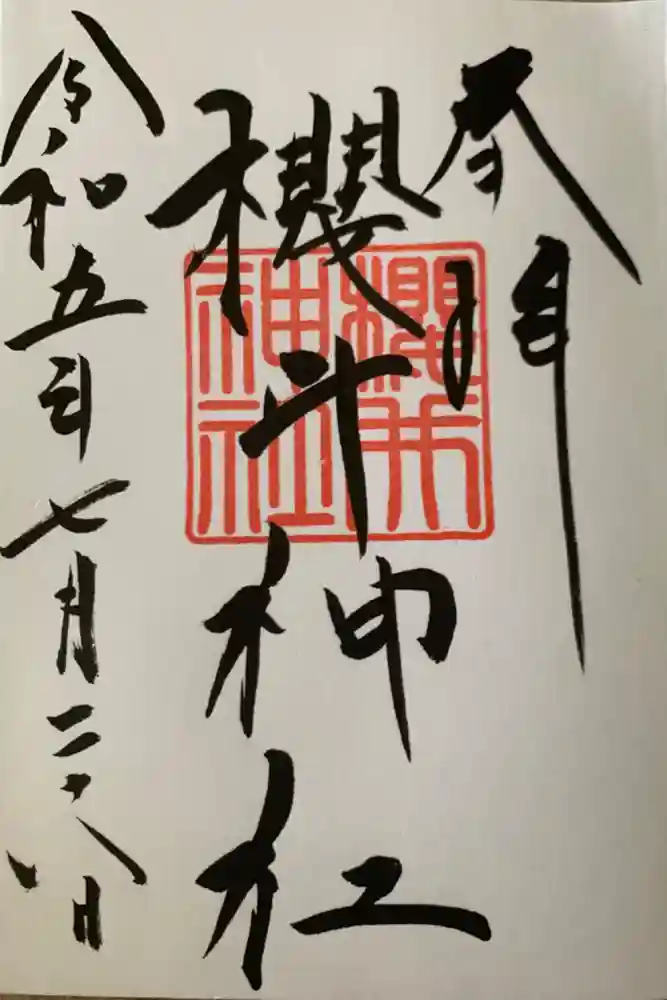 奉拝
櫻井神社
櫻井
神社
令和五年七月二十八日